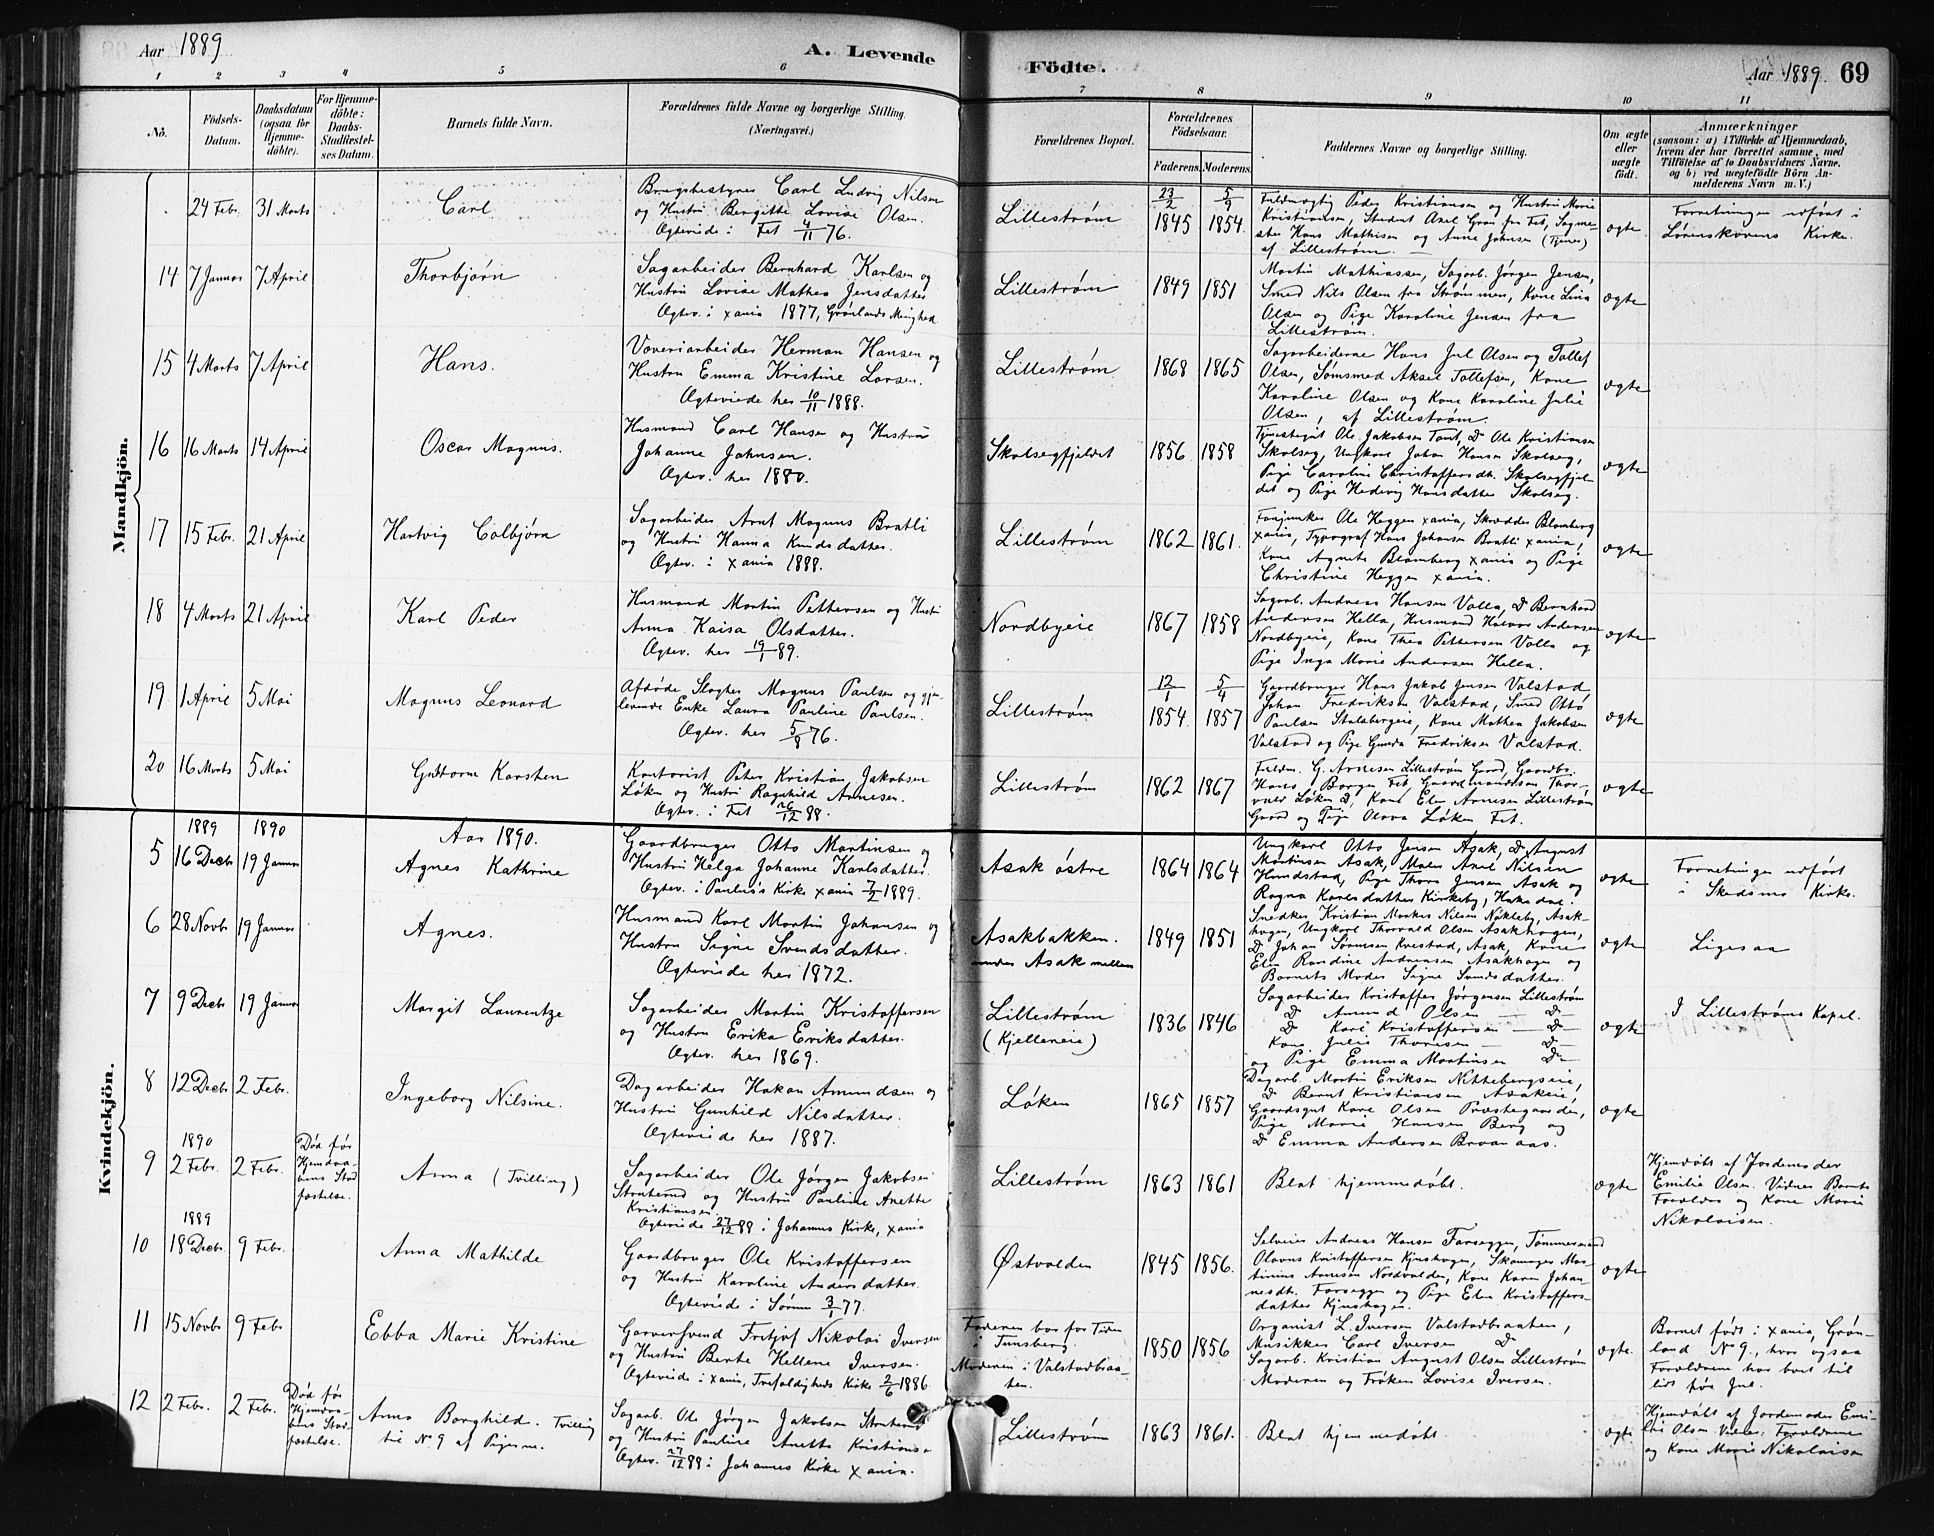 Aar 1889
A. Levende
Födte.
Aar 1889. 69
1 2 3 4 5 6 7 8 9 10 11
No.
Födsels-
Datum.
Daabsdatum
(ogsaa for
Hjemme-
döbte).
For Hjemme-
döbte:
Daabs-
Stadfæstel-
ses Datum.
Barnets fulde Navn.
Forældrenes fulde Navne og borgerlige Stilling.
(Næringsvei.)
Forældrenes Bopæl.
Forældrenes
Födselsaar.
Faderens. Moderens.
Faddernes Navne og borgerlige Stilling.
Om ægte
eller
uægte
födt.
Anmærkninger
(saasom: a) i Tilfælde af Hjemmedaab,
hvem der har forrettet samme, med
Tilföielse af to Daabsvidners Navne,
og b) ved uægtefödte Börn An-
melderens Navn m. V.)
Mandkjön.
24 Febr. 31 Marts
Carl
Brugsbestyrer Carl Ludvig Nilsen
og Hustru Bergitte Lovise Olsen.
Ægteviede i Fet 4/11 76.
Lillestrøm
23/2 1845 5/9 1854.
Fuldmægtig Peder Kristiansen og Hustru Marie
Kristiansen, Student Axel Grøn fra Fet, Sagme-
ster Hans Mathisen og Anne Johnsen (Tjener)
af Lillestrøm.
ægte
Forretningen udført i
Lørenskovens Kirke.
14 7 Januar 7 April
Thorbjørn
Sagarbeider Bernhard Karlsen og
Hustru Lovise Mathea Jensdatter
Ægtev. i Xania 1877, Grønlands Menighed
Lillestrøm
1849 1851
Martin Mathiassen, Sagarb. Jørgen Jensen,
Smed Nils Olsen fra Strømmen, Kone Lina
Olsen og Pige Karoline Jensen fra
Lillestrøm.
ægte
15 4 Marts 7 April
Hans.
Væveriarbeider Herman Hansen og
Hustru Emma Kristine Larsen.
Ægteviede her 10/11 1888.
Lillestrøm
1868 1865
Sagarbeiderne Hans Jul Olsen og Tollef
Olsen, Sømsmed Aksel Tollefsen, Kone
Karoline Olsen og Kone Karoline Julie
Olsen, af Lillestrøm.
ægte
16 16 Marts 14 April
Oscar Magnus.
Husmand Carl Hansen og Hustru
Johanne Johnsen.
Ægtev. her 1880.
Skolsegfjeldet
1856 1858
Tjenestegut Ole Jakobsen Tomt, Do Ole Kristiansen
Skolseg, Ungkarl Johan Hansen Skolseg,
Pige Caroline Christoffersdt. Skolsegfjel-
det og Pige Hedevig Hansdatter Skolseg.
ægte
17 15 Febr. 21 April
Hartvig Colbjørn
Sagarbeider Arnt Magnus Bratli
og Hustru Hanna Knudsdatter.
Ægtev. i Xania 1888.
Lillestrøm
1862 1861.
Fanjunker Ole Heggen Xania, Skrædder Blomberg
Xania, Typograf Hans Johansen Bratli Xania,
Kone Agnete Blomberg Xania og Pige
Christine Heggen Xania.
ægte
18 4 Marts 21 April
Karl Peder
Husmand Martin Pettersen og Hustru
Anna Kaisa Olsdatter.
Ægtev. her 19/1 89.
Nordbyeie
1867 1858
Sagarb. Andreas Hansen Volla, Do Bernhard
Andersen Hella, Husmand Halvor Andersen
Nordbyeie, Kone Thea Pettersen Volla og
Pige Inga Marie Andersen Hella.
ægte
19 1 April 5 Mai
Magnus Leonard
Afdøde Slagter Magnus Paulsen og gjen-
levende Enke Laura Pauline Paulsen.
Ægtev. her 5/8 76.
Lillestrøm
12/1 1854. 5/4 1857
Gaardbruger Hans Jakob Jensen Valstad,
Johan Fredriksen Valstad, Smed Otto
Paulsen Stalsbergeie, Kone Mathea Jakobsen
Valstad og Pige Gunda Fredriksen Valstad.
ægte
20 16 Marts 5 Mai
Guttorm Karsten
Kontorist Peter Kristian Jakobsen
Løken og Hustru Ragnhild Arnesen.
Ægtev. i Fet 26/12 88.
Lillestrøm
1862 1867
Fuldm. G. Arnesen Lillestrøm Gaard, Gaardbr.
Hans Borgen Fet, Gaardmandssøn Thor-
vald Løken Do, Kone Elen Arnesen Lillestrøm
Gaard og Pige Olava Løken Fet.
ægte
Kvindekjön.
1889 1890
Aar 1890.
5 16 Decbr 19 Januar
Agnes Kathrine
Gaardbruger Otto Martinsen og
Hustru Helga Johanne Karlsdatter.
Ægtev. i Paulus's Kirke Xania 7/2 1889.
Asak østre
1864 1864
Ungkarl Otto Jensen Asak, Do August
Martinsen Asak, Maler Nilsen
Hundstad, Pige Thora Jensen Asak og
Ragna Karlsdatter Kirkeby, Hakadal.
ægte
Forretningen udført
i Skedsmo Kirke.
6 28 Novbr 19 Januar
Agnes.
Husmand Karl Martin Johansen og
Hustru Signe Svendsdatter.
Ægteviede her 1872.
Asakbakken.
under Asak mellem
1849 1851
Snedker Kristian Markus Nilsen Nøkleby, Asak-
hagen, Ungkarl Thorvald Olsen Asakhagen,
Do Johan Sørensen Kvestad, Asak, Kone
Elen Randine Andreasen Asakhagen og
Barnets Moder Signe Svendsdatter.
ægte
Ligesaa
7 9 Decbr 19 Januar
Margit Laurentze
Sagarbeider Martin Kristoffersen
og Hustru Erika Eriksdatter.
Ægtev. her 1869.
Lillestrøm
(Kjelleneie)
1836 1846
Sagarbeider Kristoffer Jørgensen Lillestrøm
Do Amund Olsen — Do —
Do Karl Kristoffersen — Do —
Kone Julie Thoresen — Do —
og Pige Emma Martinsen Do
ægte
I Lillestrøms Kapel.
8 12 Decbr 2 Febr.
Ingeborg Nilsine.
Dagarbeider Hakon Amundsen og
Hustru Gunhild Nilsdatter.
Ægteviede her 1887.
Løken
1865 1857
Dagarb. Martin Eriksen Nittebergseie,
Do Bernt Kristiansen Asakeie,
Gaardsgut Karl Olsen Præstegaarden,
Pige Marie Hansen Berg og
Do Emma Andersen Braanaas.
ægte
1890
9 2 Febr. 2 Febr.
Død før
Hjemdaa-
bens Stad
fæstelse.
Anna (Tvilling)
Sagarbeider Ole Jørgen Jakobsen
Struterud og Hustru Pauline Anette
Kristiansen.
Ægteviede 27/12 88 i Johannes Kirke, Xania
Lillestrøm
1863 1861
Blot hjemmedøbt.
ægte
Hjemdøbt af Jordemoder
Emilie Olsen. Vidner Barnets
Forældre og Kone Marie
Nikolaisen.
1889
10 18 Decbr. 9 Febr.
Anna Mathilde
Gaardbruger Ole Kristoffersen
og Hustru Karoline Andersdatter.
Ægteviede i Sørum 3/1 77.
Østvolden
1845 1856.
Selveier Andreas Hansen Farseggen, Tømmermand
Olavus Kristoffersen Kjushagen, Skomager Mar-
tinius Arnesen Nordvolden, Kone Karen Johan-
nesdt. Farseggen og Pige Elen Kristoffers-
datter Kjushagen.
ægte
11 15 Novbr 9 Febr
Ebba Marie Kristine
Garversvend Fritjof Nikolai Iversen
og Hustru Berte Hellene Iversen.
Ægteviede i Xania, Trefoldigheds Kirke 2/6 1886.
Faderen bor for Tiden
i Tunsberg.
Moderen i Valstadbraa-
ten.
1850 1856
Organist L. Iversen Valstadbraaten,
Musikker Carl Iversen Do
Sagarb. Kristian August Olsen Lillestrøm
Moderen og Frøken Lovise Iversen.
ægte.
Barnet født i Xania, Grøn-
land No 9., hvor ogsaa
Forældrene har boet til
lidt før Jul.
12 2 Febr. 2 Febr.
Død før
Hjemdaa-
bens Stad-
fæstelse.
Anna Borghild. Tvilling
til No 9 af Pigerne.
Sagarb. Ole Jørgen Jakobsen Struterud
og Hustru Pauline Anette Kristiansen
Ægtev. 27/12 88 i Johannes Kirke Xania.
Lillestrøm
1863 1861.
Blot hjemmedøbt.
ægte
Hjemdøbt af Jordemoder Emi-
lie Olsen. Vidner: Forældrene
og Kone Marie Nikolaisen